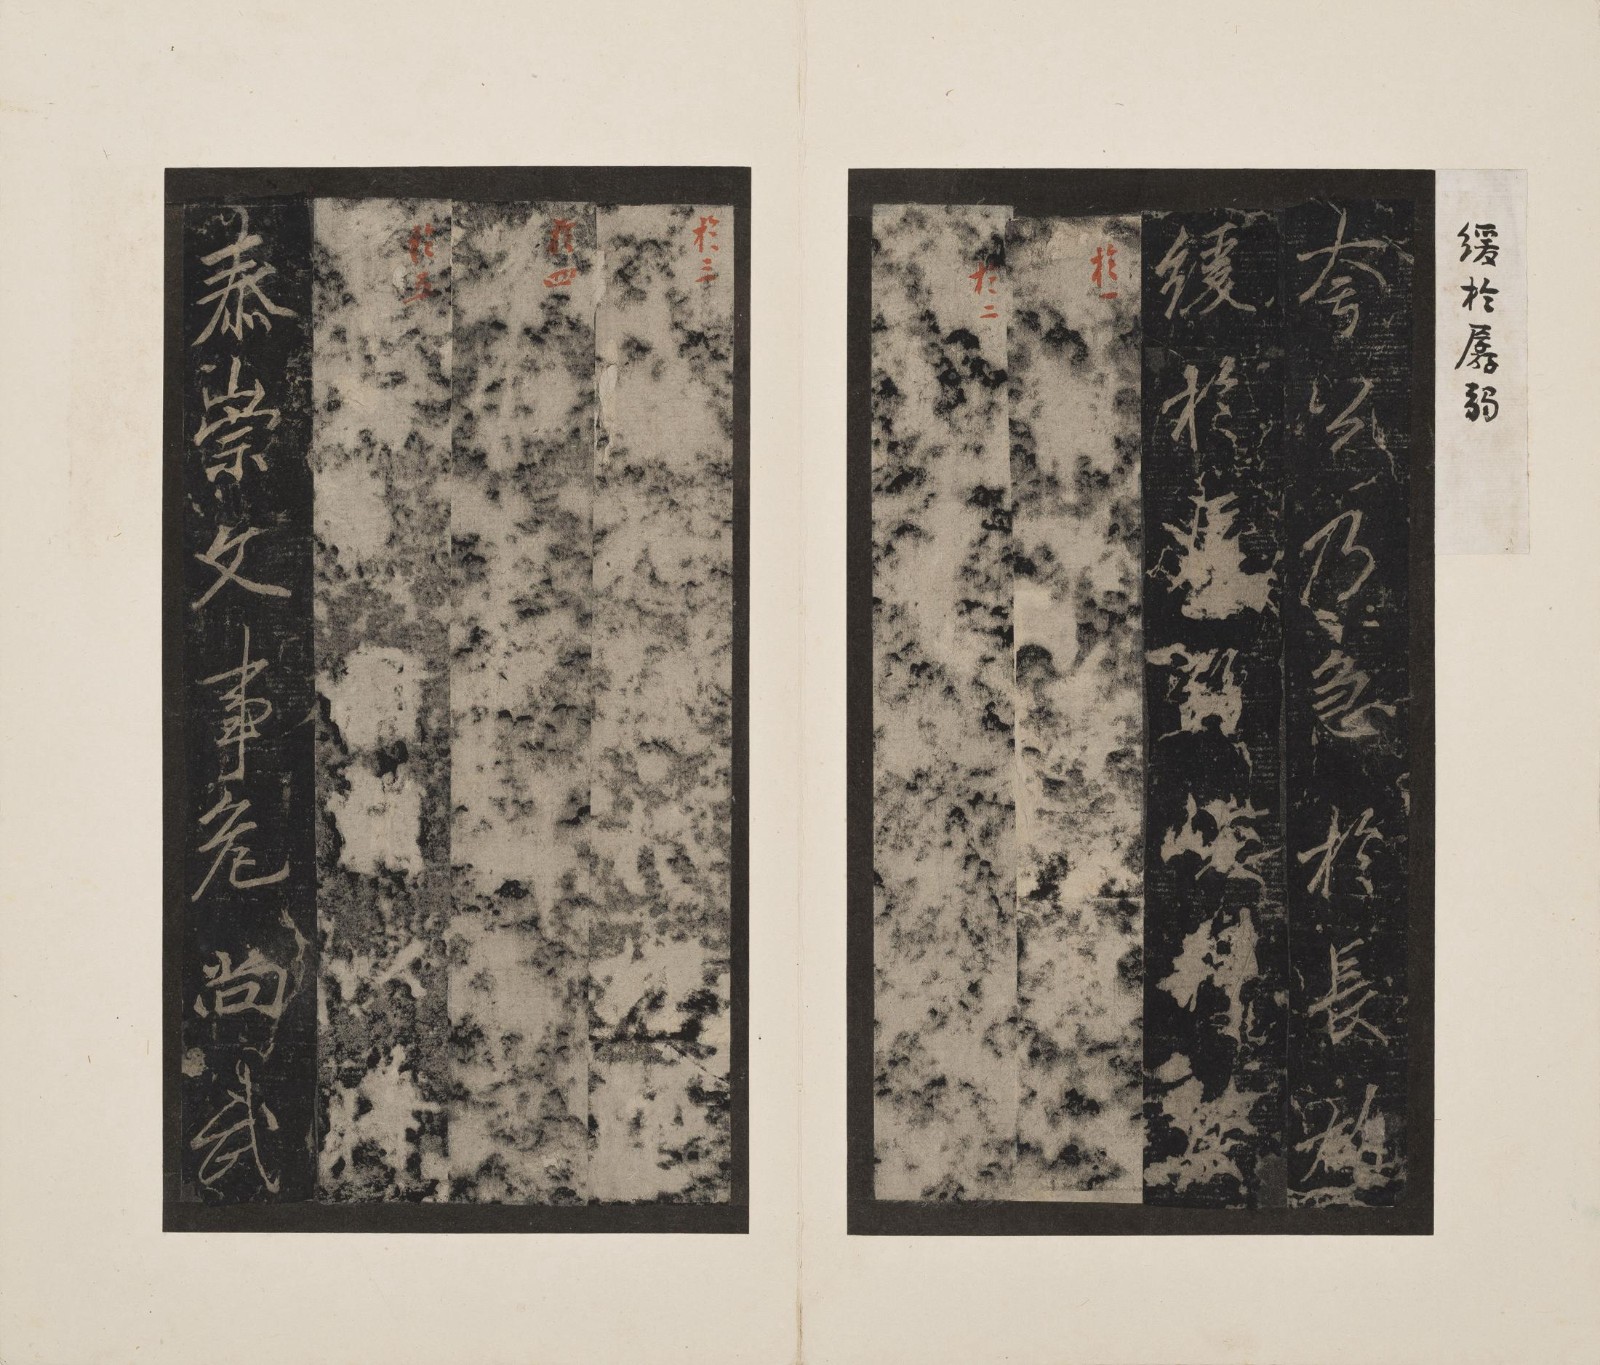 緩於孱弱
夸乃急於長雄
緩於孱弱
於一
於二
於三
於四
於五
泰崇文事危尚武